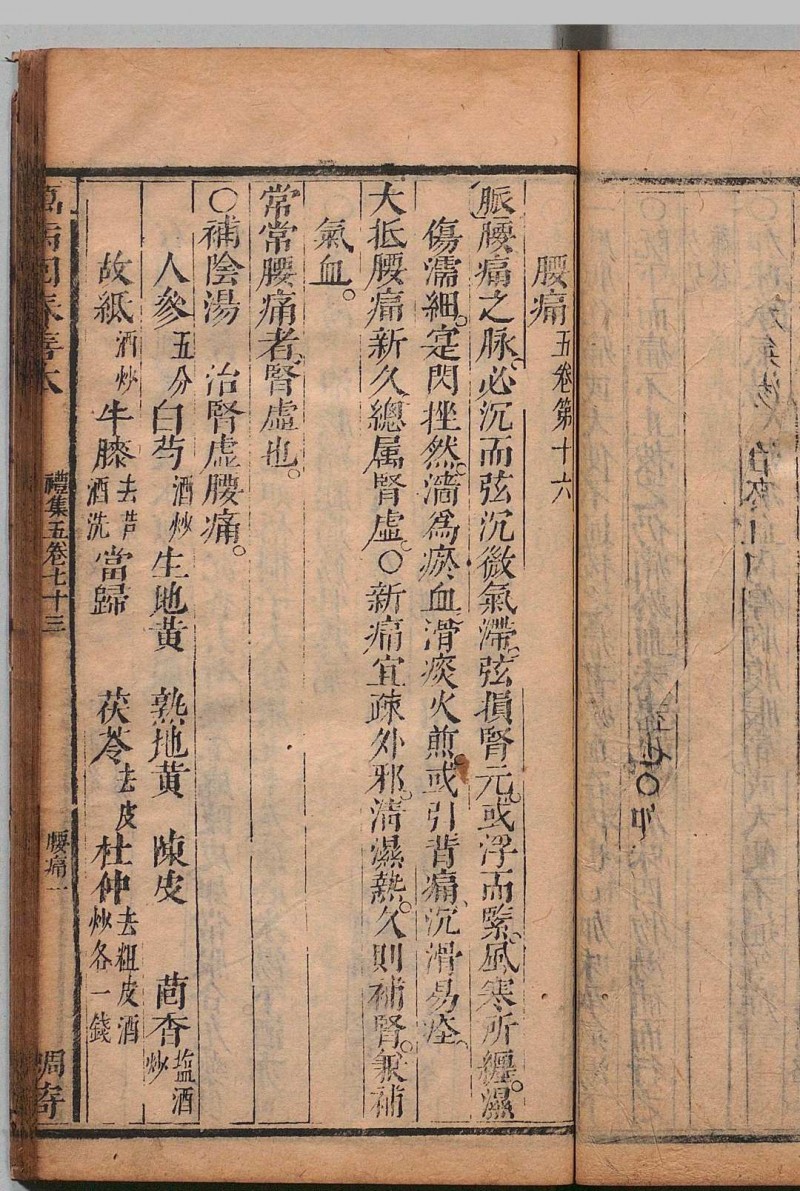 腰痛五卷第十六
脈腰痛之脉。必沉而弦沉微氣滯。弦損腎元。或浮而緊。風寒所纏。濕
傷濡細。寔閃挫然。濇為瘀血。滑痰火煎。或引背痛、沉滑易痊。
大抵腰痛新久總属腎虛。○新痛宜疎外邪。清濕熱。久則補腎。兼補
氣血。
常常腰痛者。腎虛也。
○補陰湯　治腎虛腰痛。
人參五分白芍酒炒生地黄　熟地黄　陳皮　茴香塩酒炒
故紙酒炒牛膝去芦酒洗當歸　茯苓去皮杜仲去粗皮酒炒各一錢
禮集五卷七十三
腰痛一